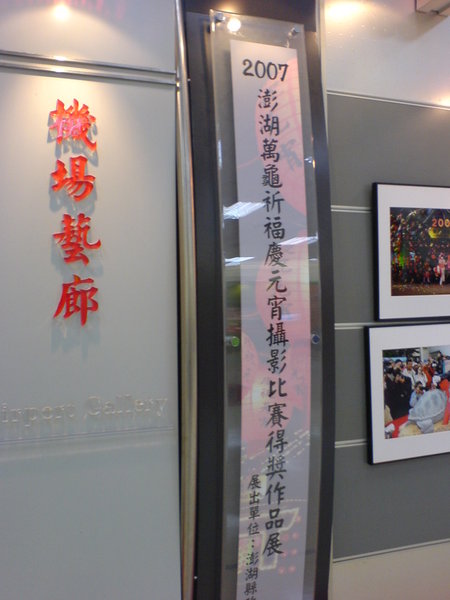 機場藝廊
Airport Gallery
2007
澎湖萬龜祈福慶元宵攝影比賽得獎作品展
展出單位：澎湖縣
200